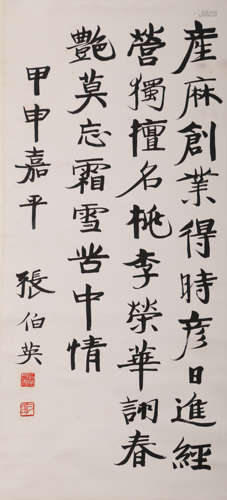 産麻創業得時彦日進經
營獨擅名桃李榮華詡春
艷莫忘霜雪苦中情
甲申嘉平
張伯英